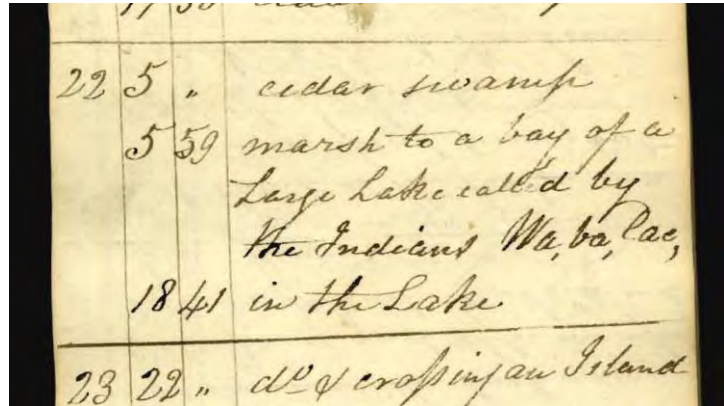 22 5 " cedar swamp
5 59 marsh to a bay of a
Large Lake called by
the Indians Wa, ba, cac,
18 41 in the Lake
23 22 " do & crossing an Island